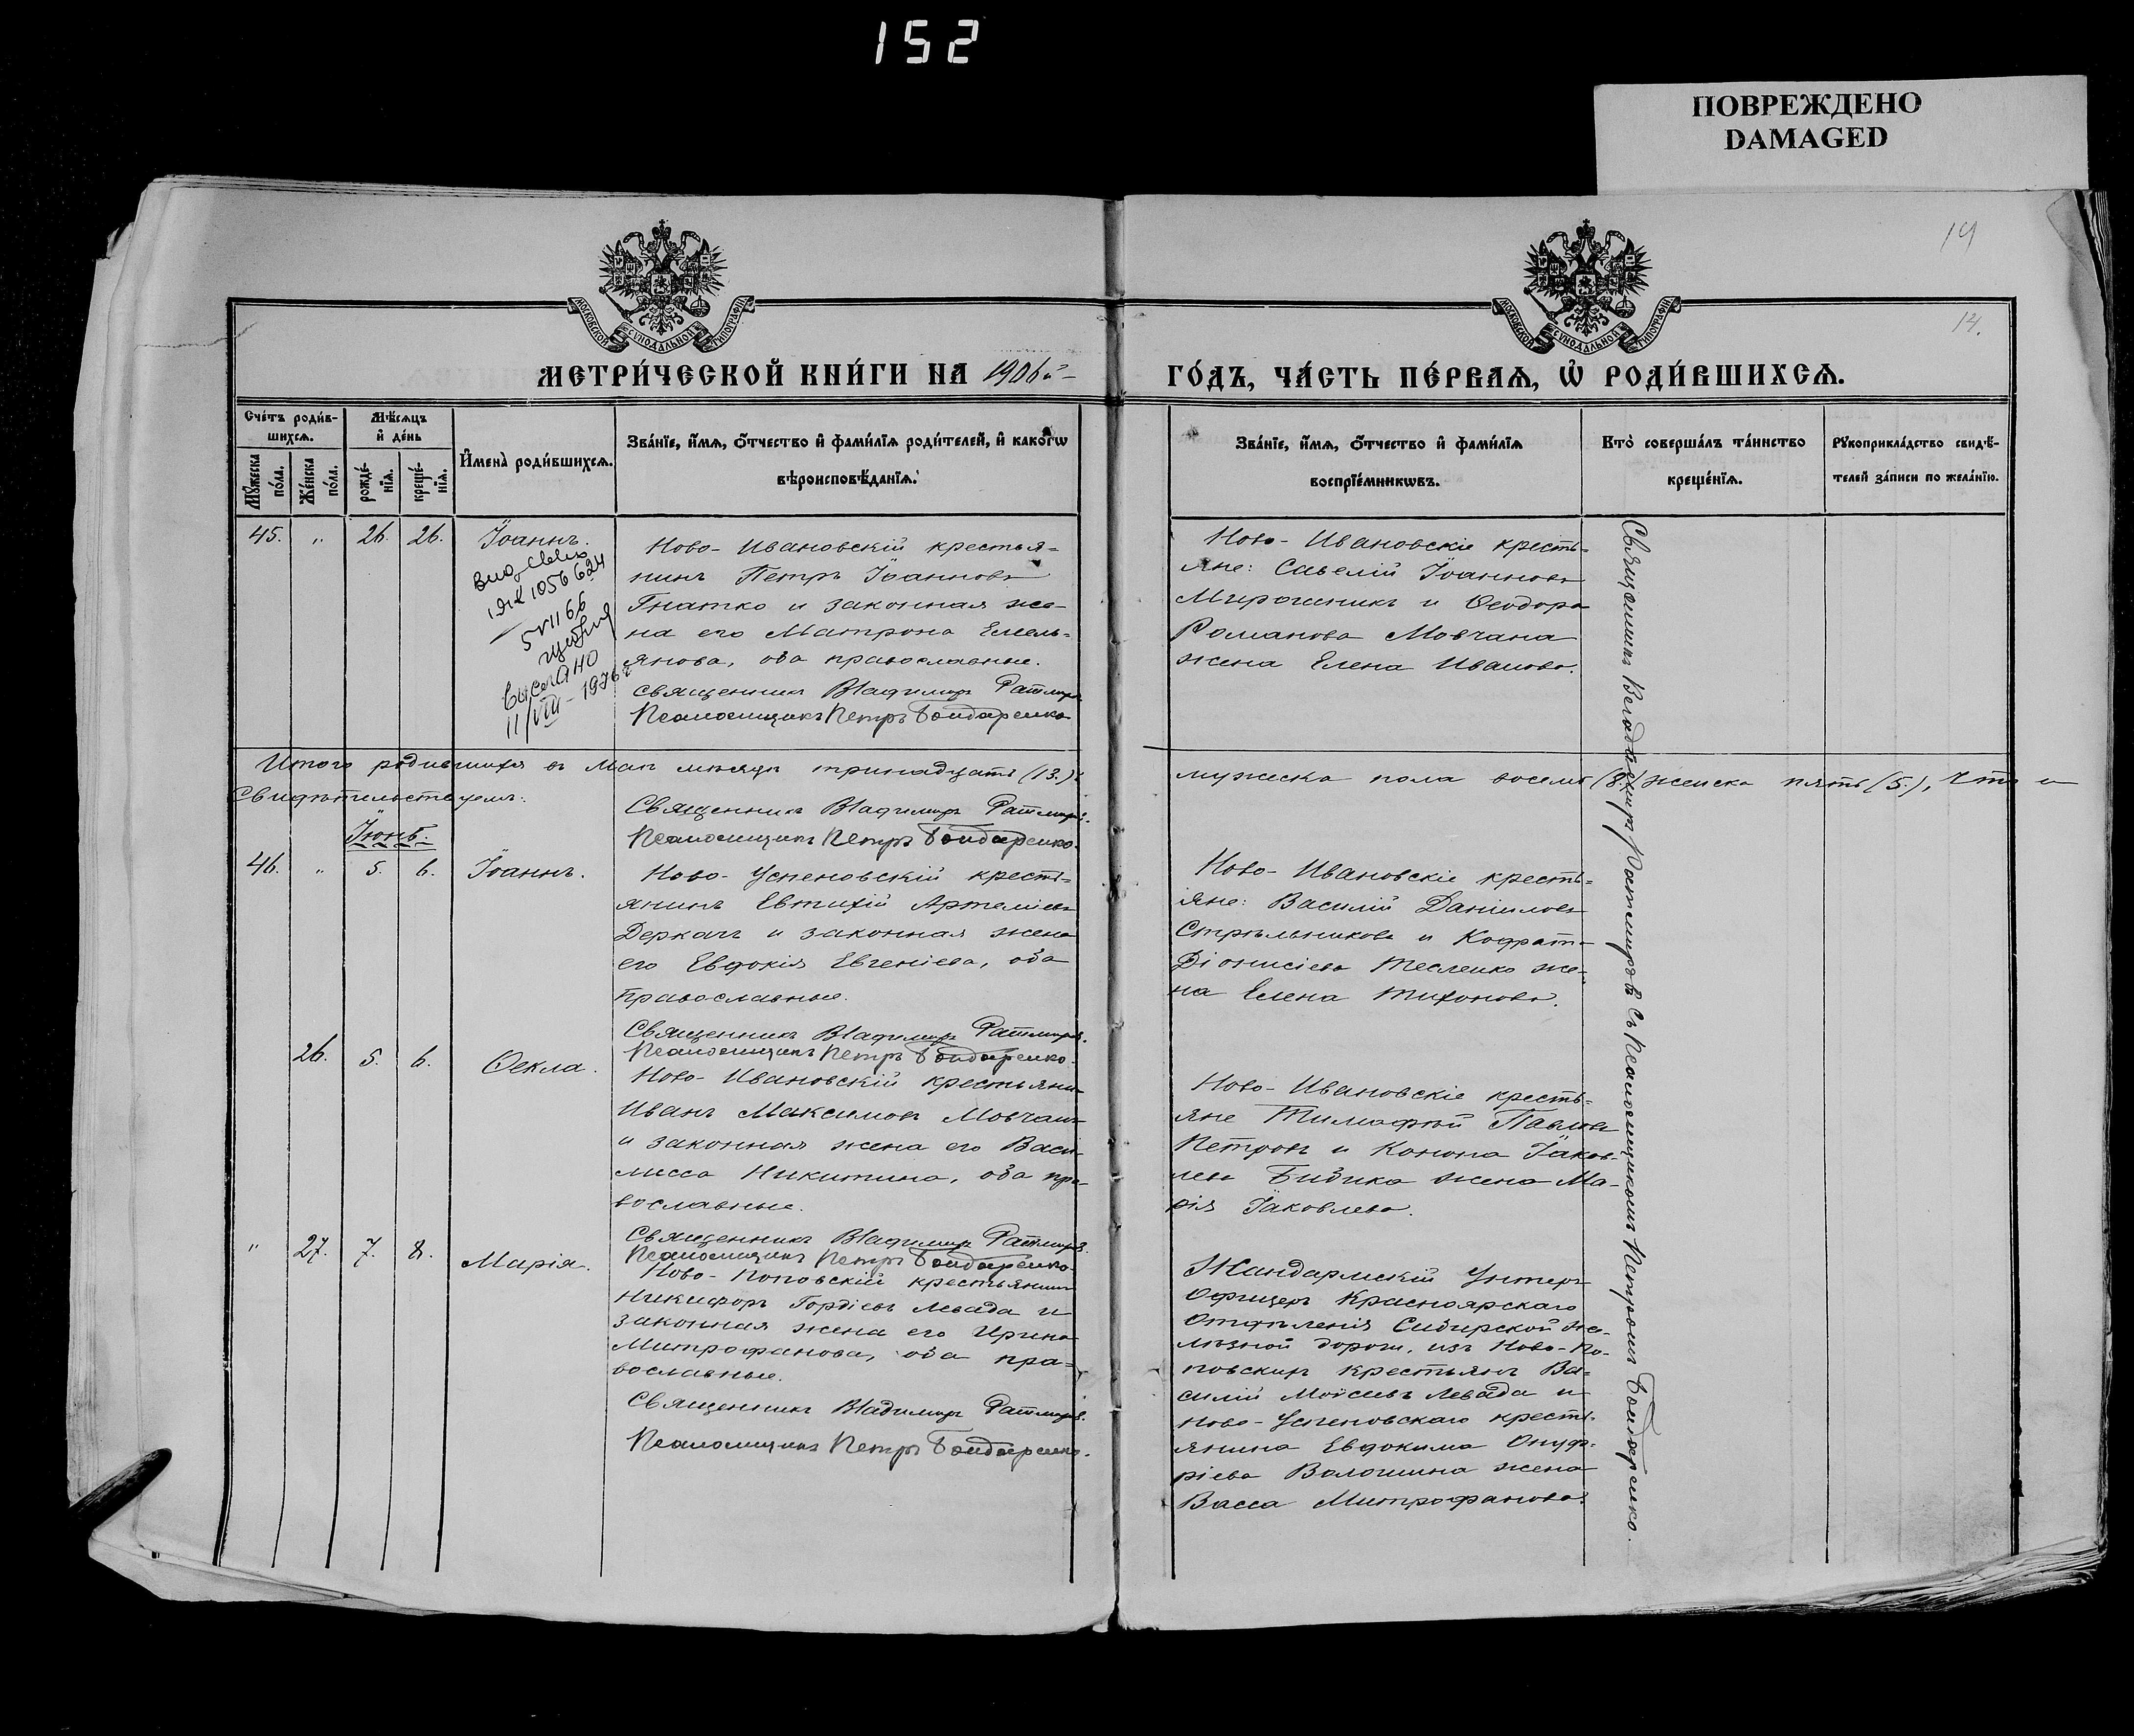 152
ПОВРЕЖДЕНО
DAMAGED
14
14.
МОСКОВСКОЙ СѴНОДАЛЬНОЙ ТИПОГРАФІИ
МОСКОВСКОЙ СѴНОДАЛЬНОЙ ТИПОГРАФІИ
МЕТРИ́ЧЕСКОЙ КНИ́ГИ НА 1906й
ГО́ДЪ, ЧА́СТЬ ПЕ́РВАѦ, Ѡ҆ РОДИ́ВШИХСѦ.
Сче́тъ роди́в-
шихсѧ.
Мѣ́сѧцъ
и҆ де́нь
Мꙋ́жеска по́ла.
Же́нска по́ла.
рожде́-нїѧ.
креще́-нїѧ.
И҆мена̀ роди́вшихсѧ.
Зва́нїе, и҆́мѧ, ѻ҆́тчество и҆ фами́лїѧ роди́телей, и҆ како́гѡ
вѣроисповѣ́данїѧ.
Зва́нїе, и҆́мѧ, ѻ҆́тчество и҆ фами́лїѧ
воспрїе́мникѡвъ.
Кто̀ соверша́лъ та́инство
креще́нїѧ.
Рꙋкоприкла́дство свидѣ́-
телей за́писи по жела́нїю.
45. " 26. 26. Іоаннъ.
1056624
5 VII 66
11/VIII - 1976 г
Ново-Ивановскій крестья-
нинъ Петръ Іоанновъ
Гнатко и законная же-
на его Матрона Емель-
янова, оба православные.
Священникъ Владимиръ Ратмиръ
Псаломщикъ Петръ Бондаренко
Ново-Ивановскіе кресть-
яне: Савелій Іоанновъ
Мирошникъ и Ѳеодора
Романова Мовчана
жена Елена Иванова.
Священникъ Владимиръ Ратмировъ съ Псаломщикомъ Петромъ Бондаренко.
Итого родившихся въ Маѣ мѣсяцѣ тринадцать (13.)
мужеска пола восемь (8.) женска пять (5.), что и
Свидѣтельствуемъ:
Священникъ Владимиръ Ратмиръ.
Псаломщикъ Петръ Бондаренко.
Іюнь.
46. " 5. 6. Іоаннъ.
Ново-Успеновскій кресть-
янинъ Евтихій Артеміевъ
Деркачъ и законная жена
его Евдокія Евгеніева, оба
православные.
Священникъ Владимиръ Ратмиръ.
Псаломщикъ Петръ Бондаренко.
Ново-Ивановскіе кресть-
яне: Василій Даниловъ
Стрѣльниковъ и Кодрат-
Діонисіева Тесленко же-
на Елена Тихонова.
26. 5. 6. Ѳекла.
Ново-Ивановскій крестьянин
Иванъ Максимовъ Мовчанъ
и законная жена его Васи-
лисса Никитина, оба пра-
вославные.
Священникъ Владимиръ Ратмиръ.
Псаломщикъ Петръ Бондаренко.
Ново-Ивановскіе кресть-
яне Тимофѣй Павловъ
Петровъ и Конона Іаков-
лева Бибика жена Ма-
рія Іаковлева.
" 27. 7. 8. Марія.
Ново-Поповскій крестьянинъ
Никифоръ Гордіевъ Левада и
законная жена его Ирина
Митрофанова, оба пра-
вославные.
Священникъ Владимиръ Ратмиръ.
Псаломщикъ Петръ Бондаренко.
Жандармскій Унтеръ
Офицеръ Красноярскаго
Отдѣленія Сибирской же-
лѣзной дороги, изъ Ново-По-
повскихъ крестьянъ Ва-
силій Моисеевъ Левада и
Ново-Успеновскаго кресть-
янина Евдокима Онуф-
ріева Волошина жена
Васса Митрофанова.